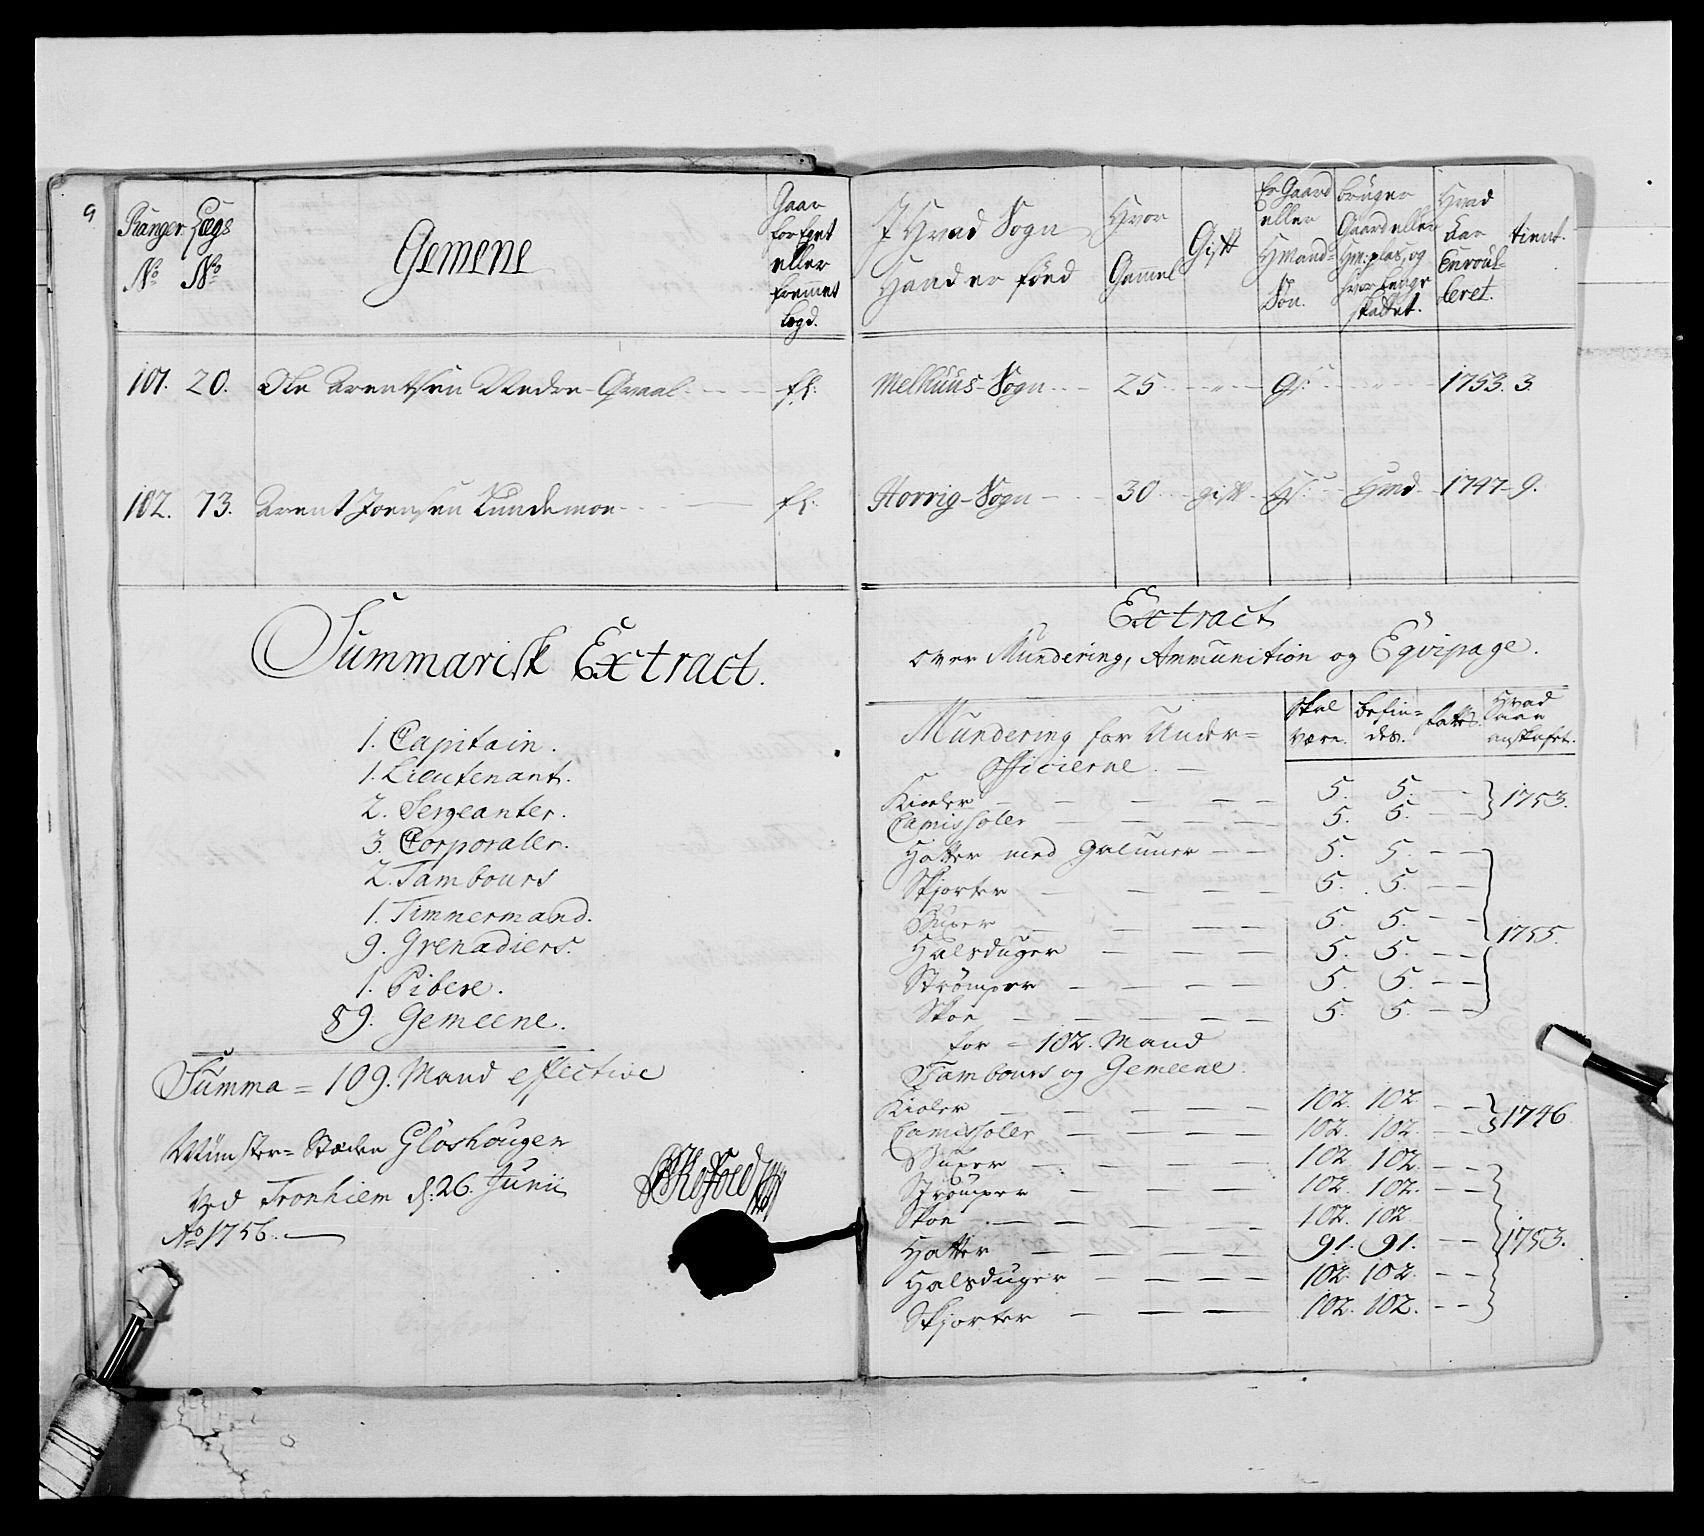 9
Ranger Lægs
No No
Gemene
Gaar
for Eget
eller
fremet
Legd.
101. 20. Ole Arentsen Nedre Qvaal fl:
102. 73. Arent Joensen Lundemoe fl:
Summarisk Extract.
1. Capitain.
1. Lieutenant.
2. Sergeanter.
3. Corporaler.
2. Tambours
1. Timmermand.
9. Grenadiers.
1. Pibere.
89. Gemeene.
Summa = 109. Mand effective
Münster-Stæden Gløshougen
ved Tronhiem d: 26. Junii
Ao 1756.
I Hvad Sogn
Hand er føed
Hvor
Gamel
Gift
Er Gaard
eller
Hmands
Søn.
bruger
Gaard eller
Hm:plas, og
hvor Lenge
skattet.
Hvad
Aar
Enroul-
leret.
tient.
Melhuus-Sogn 25 " Gs: " 1753. 3.
Horrig-Sogn 30 gift Hs: Hmd 1747 9.
Extract
over Mundering, Ammunition og Eqvipage.
Mundering for Under-
Officierne.
skal
være.
befin-
des.
Hvad
Aar
anskafet.
Kioler 5. 5. 1753.
Camissoler 5. 5.
Hatter med Galuner 5. 5.
Skjorter 5. 5.
Buxer 5. 5. 1755.
Halsduger 5. 5.
Strømper 5. 5.
Skoe 5. 5.
for 102. Mand
Tambours og Gemeene.
Kioler 102. 102. 1746.
Camissoler 102. 102.
Buxer 102. 102.
Strømper 102. 102.
Skoe 102. 102
Hatter 91. 91. 1753.
Halsduger 102. 102.
Skjorter 102. 102.